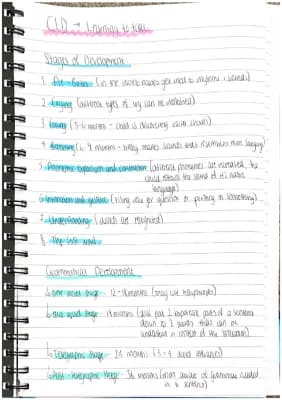 CLD → Learning to talk
Stages of Development
1. Pre-Birth (in the womb babies get used to rhythms + sounds)
2. Crying (different types of cry can be identified)
3. Cooing (3-6 months - child is discovering vocal chords)
4. Babbling (6-9 months - baby makes sounds that resemble more language)
5. Phonemic expansion and contraction (different phonemes are increased, the
child retains the sound of its native
language)
6. Intonation and gesture (rising voice for question or pointing to something)
7. Understanding (words are recognised)
8. The first word
Grammatical Development
↳ One word stage - 12-18 months (may use holophrases)
↳ Two word stage - 18 months (child put 2 important parts of a sentence
down to 2 words that can be
understood in context of the situation)
↳ Telegraphic Stage - 24 months (3-4 word utterances)
↳ Post-telegraphic stage - 36 months (more aware of grammar needed
in a sentence)